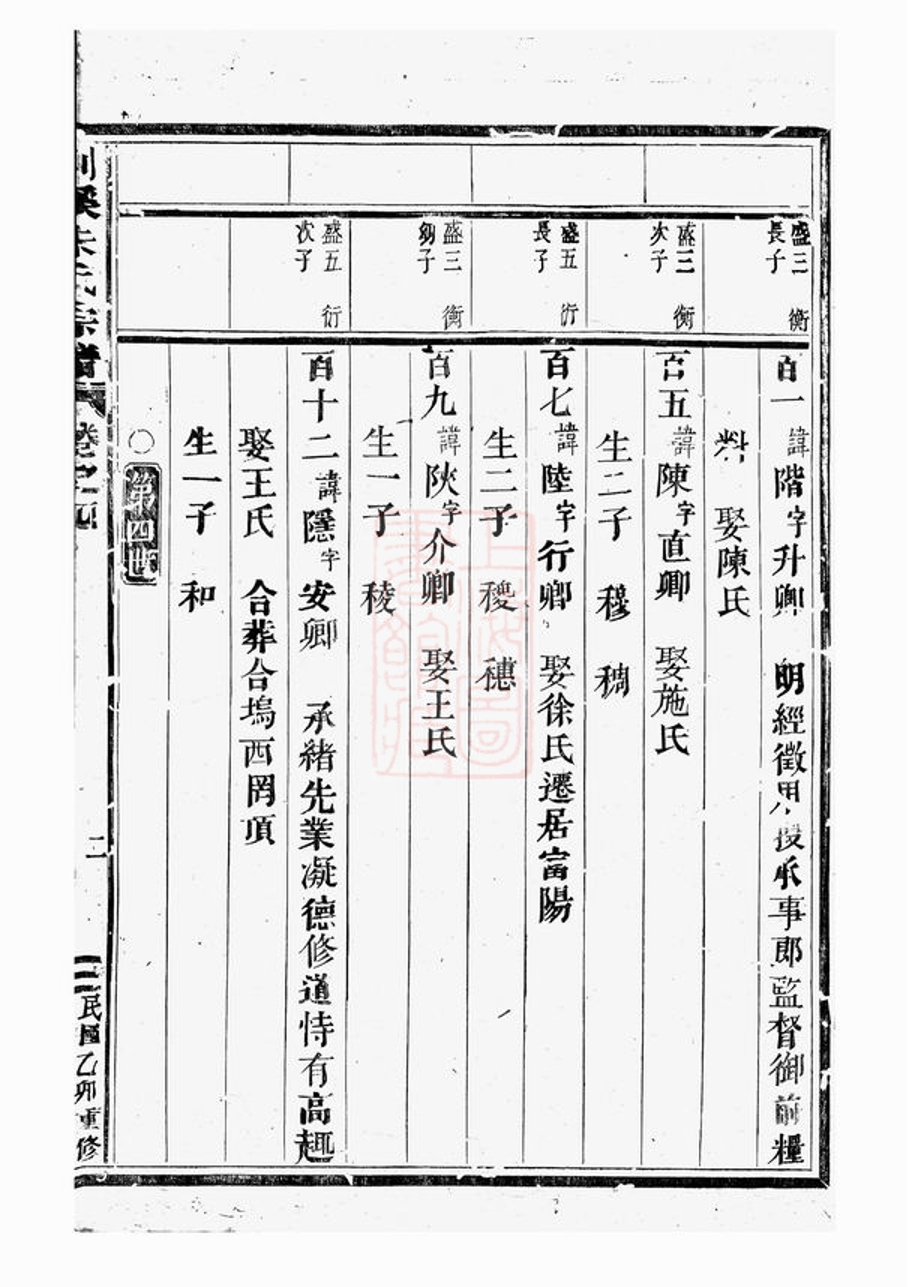 盛三 衡
長子
百一 諱階字升卿 明經徵用授承事郎監督御前糧
料 娶陳氏
盛三 衡
次子
百五 諱陳字直卿 娶施氏
生二子 穆 稠
盛五 衍
長子
百七 諱陸字行卿 娶徐氏遷居富陽
生二子 稷 穗
盛三 衡
幼子
百九 諱陝字介卿 娶王氏
生一子 稜
盛五 衍
次子
百十二 諱隱字安卿 承緒先業凝德修道恃有高趣
娶王氏 合葬合塢西岡項
生一子 和
○第四世
溪朱氏宗譜 卷之四 二 民國乙卯重修